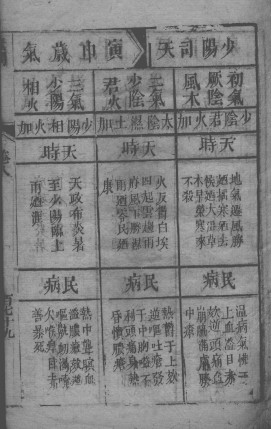 少陽司天
寅申歲氣
初氣
厥陰
風木
二氣
少陰
君火
三氣
少陽
相火
少陰君火加
太陰濕土加
少陽相火加
天時
天時
天時
地氣遷風勝
廼搖寒廼去
候廼大溫草
木早榮寒來
不殺
火反鬱白埃
四起雲趨雨
府風不勝濕
雨廼零民廼
康
天政布炎暑
至少陽臨上
雨廼涯
民病
民病
民病
溫病氣怫于
上血溢目赤
欬逆頭痛血
崩脇滿膚腠
中瘡
熱鬱于上欬
逆嘔吐瘡發
于中胸嗌不
利頭痛身熱
昏憒膿瘡
熱中聾瞑血
溢膿瘡欬逆
嘔鼽衄渴嚏
欠喉痺目赤
善暴死